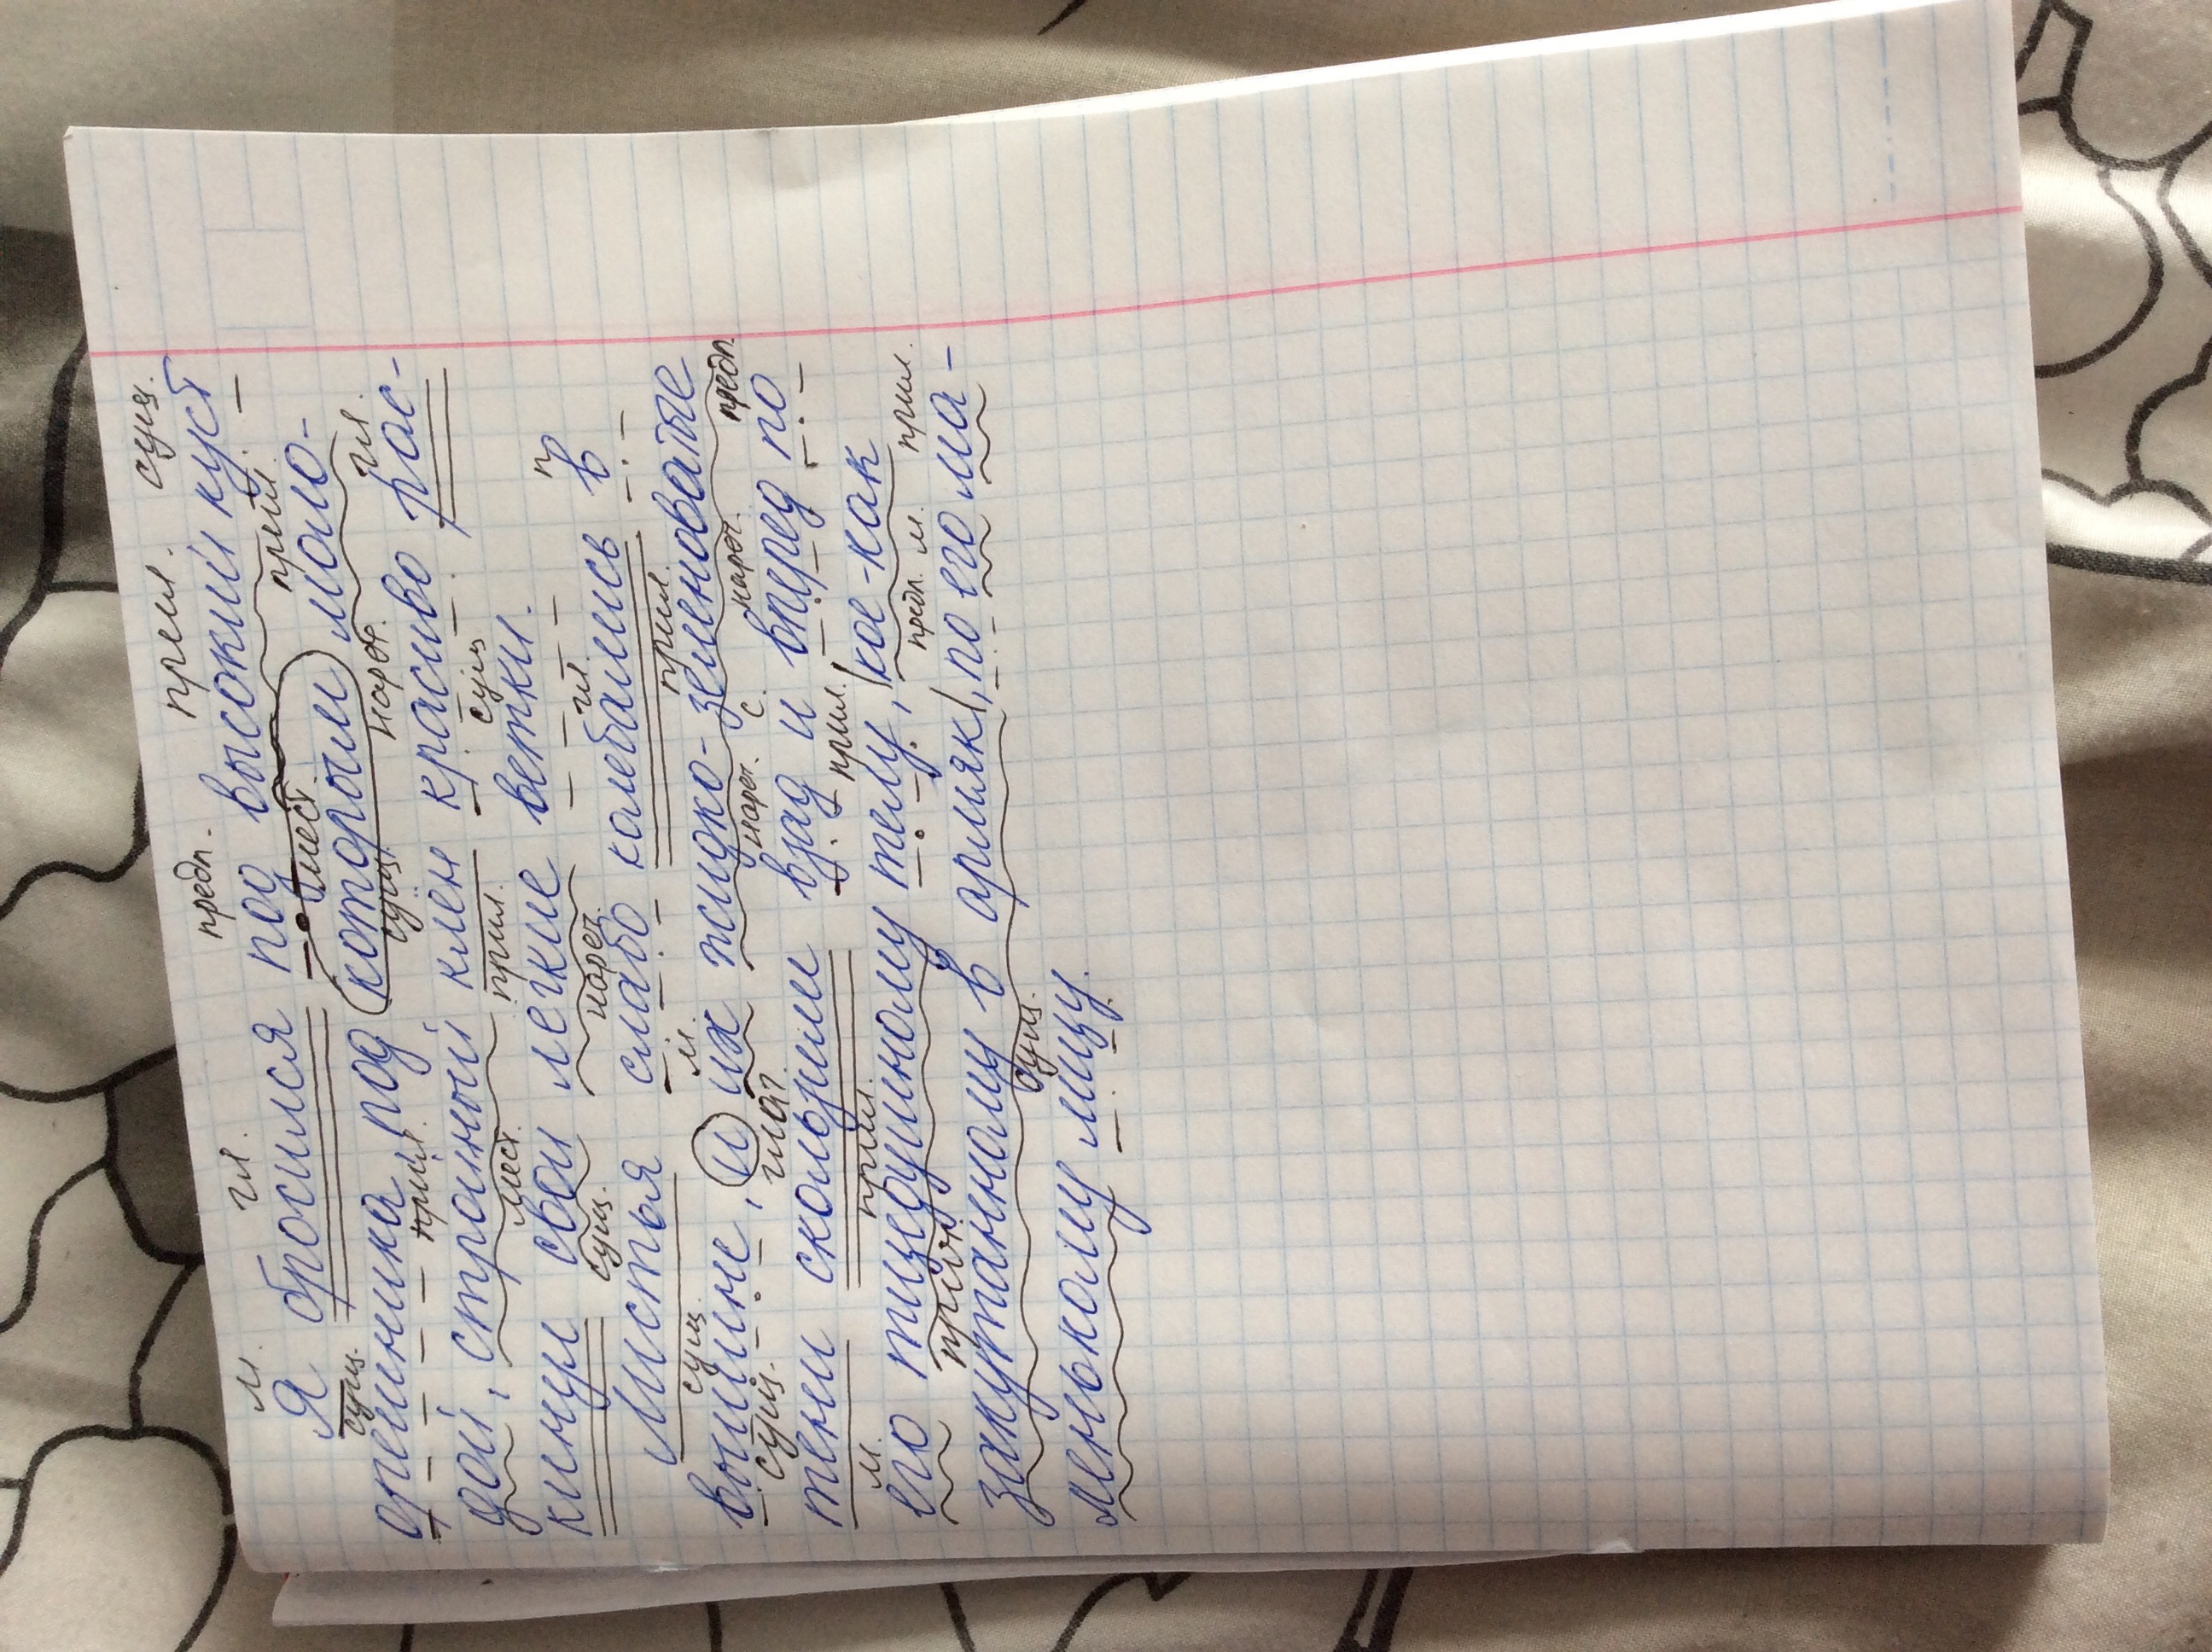 м. гл. предп. прил. сущ.
Я бросился под высокий куст
сущ. мест. прил.
орешника, под которым моло-
прил. сущ. нареч. гл.
дой, стройный клен красиво рас-
мест. прил. сущ.
кинул свои легкие ветки.
сущ. нареч. гл. п
Листья слабо колебались в
сущ. м. прил.
вышине, и их жидко-зеленоватые
сущ. глаг. нареч. с. нареч. предп
тени скользили взад и вперед по
м. прил. прил.
его тщедушному телу, кое-как
прич. предп. м. прил.
закутанному в армяк, по его ма-
сущ.
ленькому лицу.